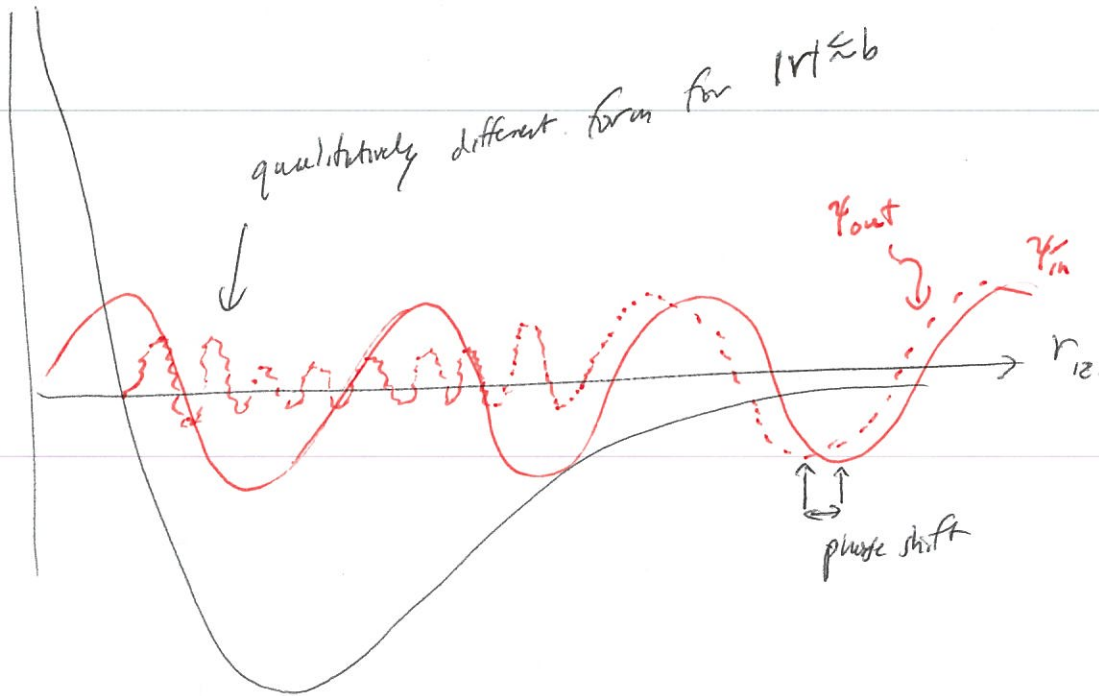 qualitatively different form for |r| ≲ b
ψout
ψin
r12
phase shift